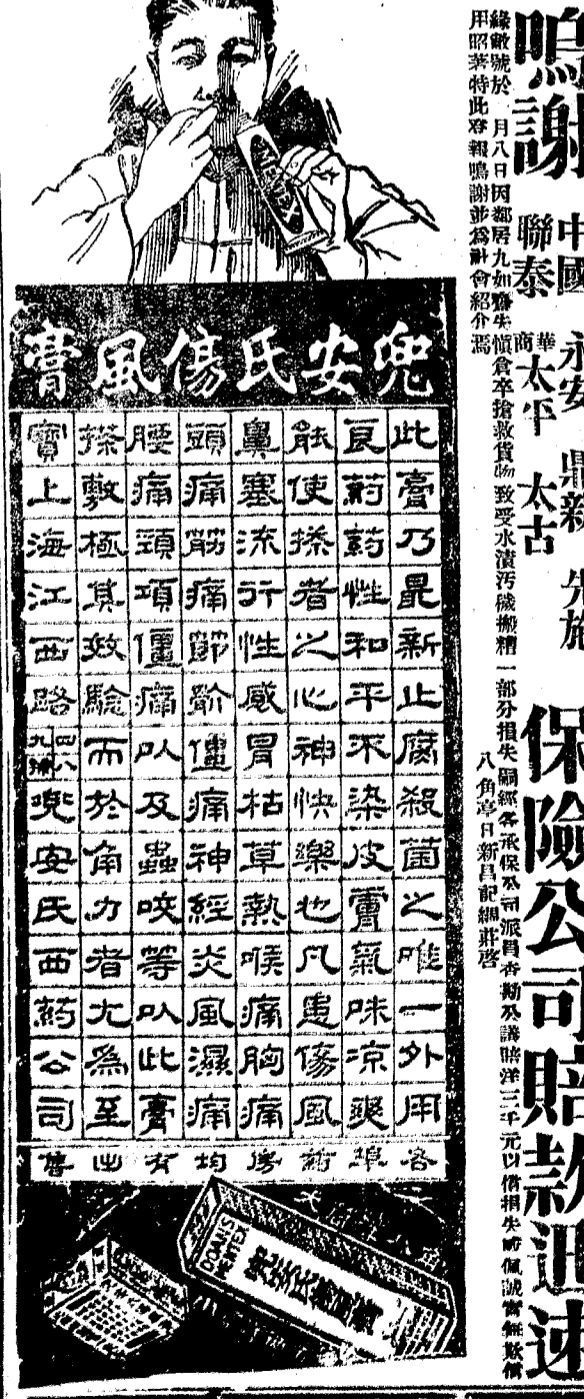 鳴謝
中國 永安 鼎新 先施
聯泰 華商太平 太古
保險公司賠款迅速
緣敝號於一月八日因鄰居九如齋失慎倉卒搶救貨物致受水漬汚穢搬糟一部分損失嗣經各承保公司派員查勘公議賠洋三千元以償損失佩誠實無欺信
用昭著特此登報鳴謝並爲社會紹介焉
八角亭日新昌記綢莊啓
MENTEX
兜安氏傷風膏
此膏乃最新止腐殺菌之唯一外用
良葯葯性和平不染皮膚氣味凉爽
能使搽者之心神快樂也凡患傷風
鼻塞流行性感冒枯草熱喉痛胸痛
頭痛筋痛節骱僵痛神經炎風濕痛
腰痛頸項僵痛以及蟲咬等以此膏
搽敷極其效驗而於角力者尤爲至
寶上海江西路四八九號兜安氏西葯公司
各埠葯房均有出售
DOAN'S
MENTEX
兜安氏傷風膏